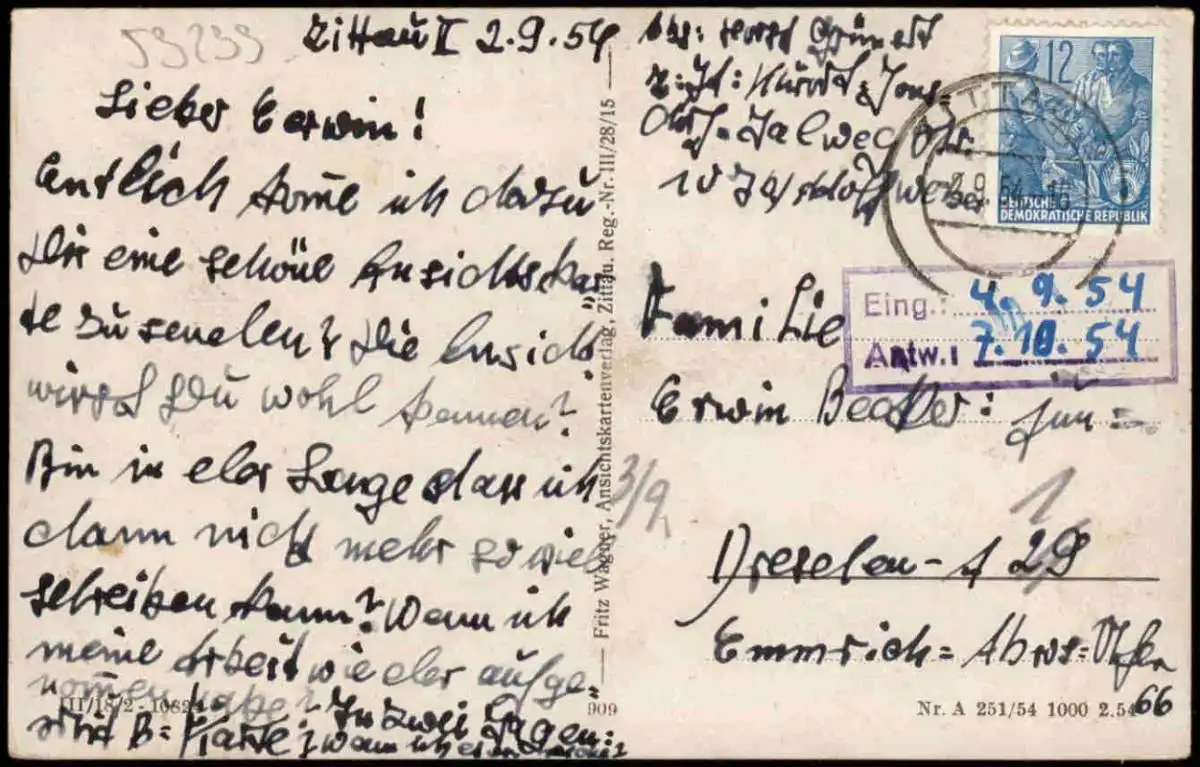 59299
Zittau II 2.9.54
Lieber Eerwin!
Entlich kome ich dazu
Dir eine schöne Ansichtskar
te zu senden? Die Ansicht
wirst Du wohl kennen?
Bin in der Lange dass ich
dann nicht mehr so viel
schreiben kann? Wann ich
meine Arbeit wieder aufge-
nomen habe? In zwei Tagen:
sind B= Karte; wann ich
III/18/2 - 1082
909
Fritz Wagner, Ansichtskartenverlag, Zittau. Reg.-Nr. III/28/15
3/9.
Abs: Horst Grünert
z. Zt:
Talweg Str.
12
DEUTSCHE
DEMOKRATISCHE REPUBLIK
ZITTAU
-2.9.54-16
Eing.: 4.9.54
Antw.: 7.10.54
Familie
Erwin Becker: jun=
1
Dresden-A 29
Emmrich=Ahrs=Ufer
66
Nr. A 251/54 1000 2.54